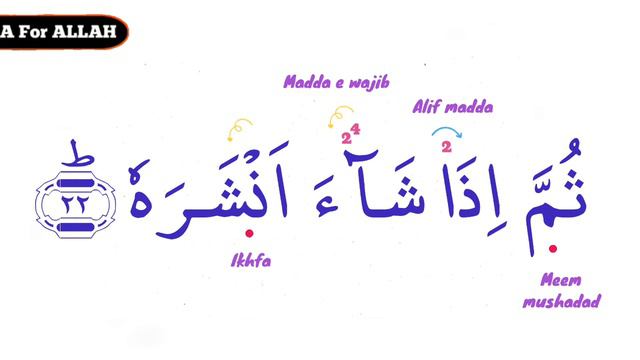 A For ALLAH
Madda e wajib
Alif madda
2 4
2
ثُمَّ اِذَا شَآءَ اَنْشَرَهٗ ؕ ٢٢
Ikhfa
Meem
mushadad